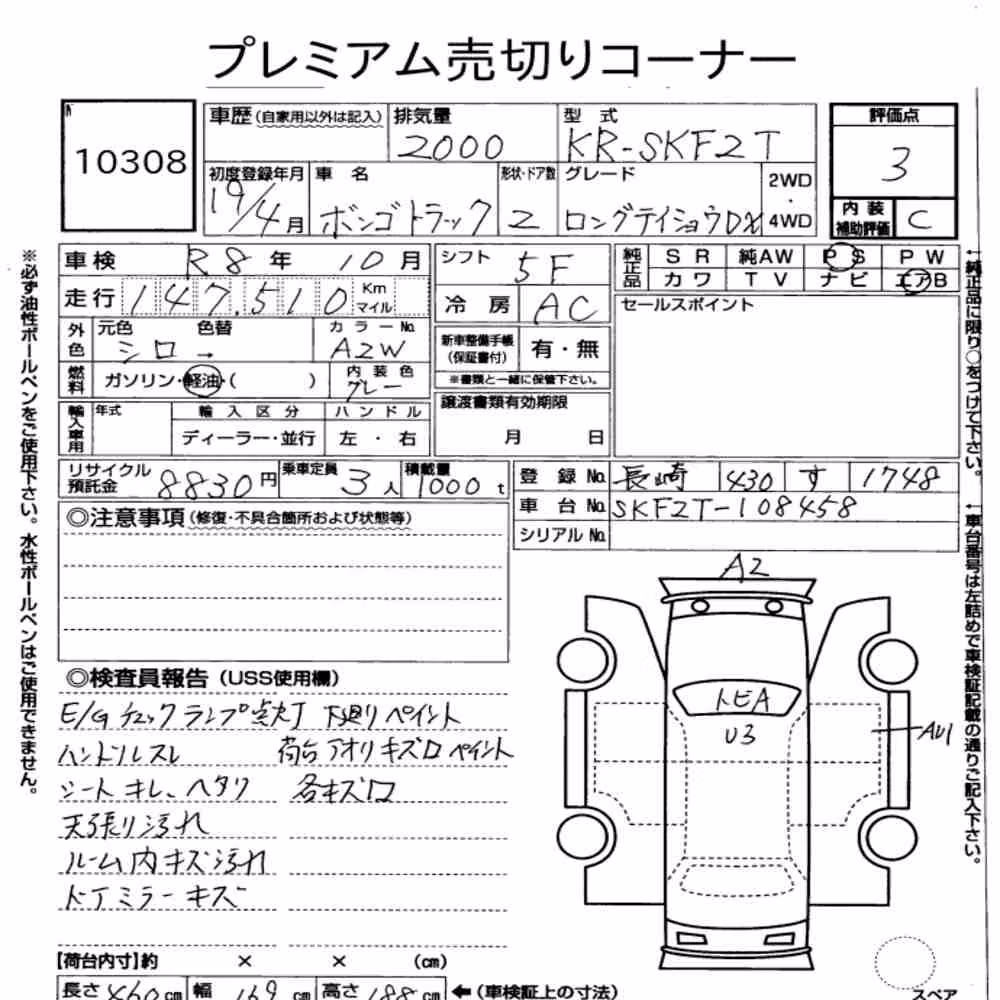 プレミアム売切りコーナー
10308
車歴 (自家用以外は記入) 排気量 型式 評価点
2000 KR-SKF2T 3
初度登録年月 車名 形状・ドア数 グレード 2WD・4WD
19/4月 ボンゴトラック 2 ロングテイショウDX
内装補助評価 C
車検 R8年 10月 シフト 5F
純正品 SR 純AW PS PW
カワ TV ナビ エアB
走行 147,510 Km マイル 冷房 AC
セールスポイント
外色 元色 色替 カラーNo.
シロ → A2W
新車整備手帳(保証書付) 有・無
※書類と一緒に保管下さい。
燃料 ガソリン・軽油・( ) 内装色 グレー
譲渡書類有効期限
月 日
輸入車用 年式 輸入区分 ハンドル
ディーラー・並行 左・右
リサイクル預託金 8830円 乗車定員 3人 積載量 1000t
登録No. 長崎 430 す 1748
車台No. SKF2T-108458
シリアルNo.
◎注意事項 (修復・不具合箇所および状態等)
◎検査員報告 (USS使用欄)
E/Gチェックランプ点灯 下廻りペイント
ハンドルスレ 荷台アオリキズロペイント
シートキレ、ヘタリ 各キズロ
天張り汚れ
ルーム内キズ汚れ
ドアミラーキズ
A2
トビA
U3
AU1
【荷台内寸】約 × × (cm)
長さ 460cm 幅 169cm 高さ 188cm ←(車検証上の寸法)
スペア
※必ず油性ボールペンをご使用下さい。水性ボールペンはご使用できません。
←純正品に限り○をつけて下さい。
←車台番号は左詰めで車検証記載の通りご記入下さい。